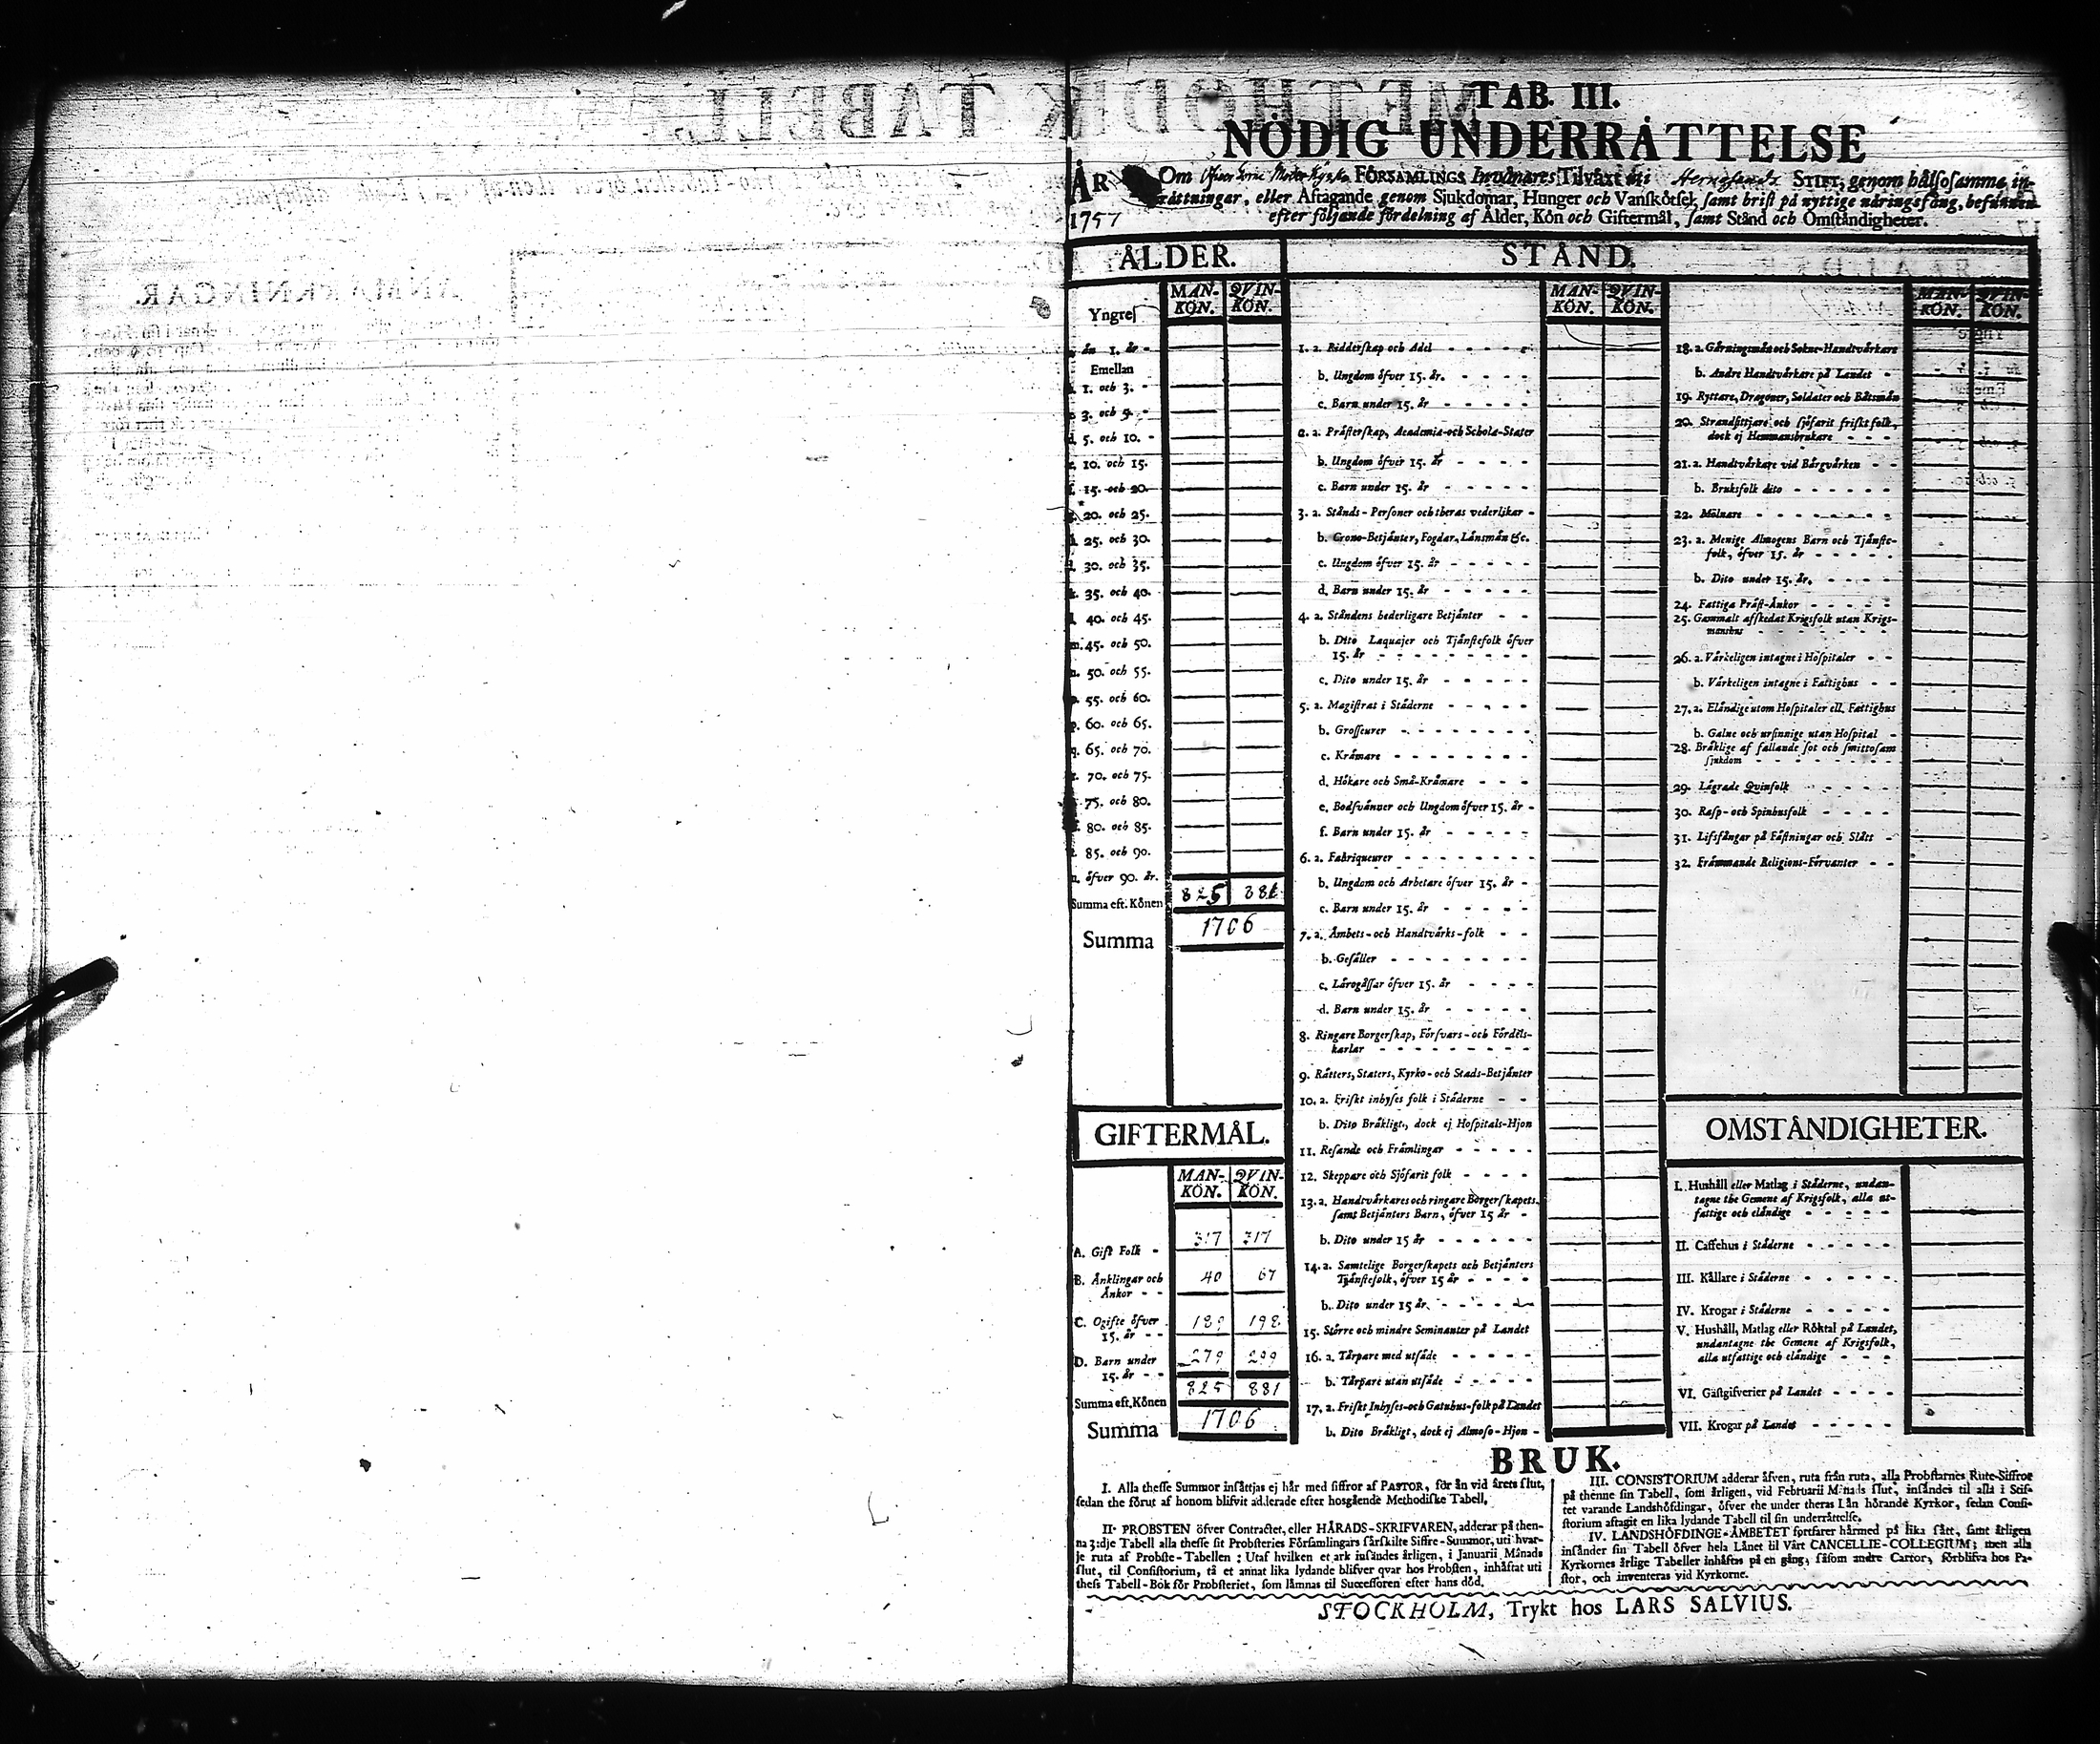 TAB. III.
NÖDIG UNDERRÅTTELSE
ÅR Om FÖRSAMLINGS Invånares Tilväxt uti Hernösands STIFT, genom hålsosamma in-
råttningar, eller Aftagande genom Sjukdomar, Hunger och Vanskötsel, samt brist på nyttige näringsfång, befunnen
1757 efter följande fördelning af Ålder, Kön och Giftermål, samt Stånd och Omståndigheter.
ÅLDER.
MAN-KÖN. QVIN-KÖN.
Yngre
än 1. år -
Emellan
1. och 3. -
3. och 5. -
d. 5. och 10. -
e. 10. och 15.
f. 15. och 20.
g. 20. och 25.
25. och 30.
30. och 35.
k. 35. och 40.
l. 40. och 45.
m. 45. och 50.
n. 50. och 55.
o. 55. och 60.
p. 60. och 65.
q. 65. och 70.
r. 70. och 75.
75. och 80.
80. och 85.
85. och 90.
öfver 90. år.
Summa eft. Könen 825 881
Summa 1706
GIFTERMÅL.
MAN-KÖN. QVIN-KÖN.
A. Gift Folk - 317 317
B. Änklingar och
Änkor - - 40 67
C. Ogifte öfver
15. år - - 189 198
D. Barn under
15. år - - 279 299
Summa eft. Könen 825 881
Summa 1706
STÅND.
MAN-KÖN. QVIN-KÖN.
1. a. Ridderskap och Adel
b. Ungdom öfver 15. år.
c. Barn under 15. år
2. a. Pråsterskap, Academiæ-och Scholæ-Stater
b. Ungdom öfver 15. år
c. Barn under 15. år
3. a. Stånds-Personer och theras vederlikar
b. Crono-Betjänter, Fogdar, Länsmän &c.
c. Ungdom öfver 15. år
d. Barn under 15. år
4. a. Ståndens hederligare Betjänter
b. Dito Laquajer och Tjänstefolk öfver
15. år
c. Dito under 15. år
5. a. Magistrat i Städerne
b. Grosseurer
c. Krämare
d. Hökare och Små-Krämare
e. Bodsvänner och Ungdom öfver 15. år
f. Barn under 15. år
6. a. Fabriqueurer
b. Ungdom och Arbetare öfver 15. år
c. Barn under 15. år
7. a. Ämbets-och Handtvärks-folk
b. Gesäller
c. Lärogåssar öfver 15. år
d. Barn under 15. år
8. Ringare Borgerskap, Försvars-och Fördels-
karlar
9. Rätters, Staters, Kyrko-och Stads-Betjänter
10. a. Friskt inhyses folk i Städerne
b. Dito Bräkligt, dock ej Hospitals-Hjon
11. Resande och Främlingar
12. Skeppare och Sjöfarit folk
13. a. Handtvärkares och ringare Borgerskapets,
samt Betjänters Barn, öfver 15 år
b. Dito under 15 år
14. a. Samtelige Borgerskapets och Betjänters
Tjänstefolk, öfver 15 år
b. Dito under 15 år.
15. Större och mindre Seminanter på Landet
16. a. Tärpare med utsäde
b. Tärpare utan utsäde
17. a. Friskt Inhyses-och Gatuhus-folk på Landet
b. Dito Bräkligt, dock ej Almoso-Hjon
MAN-KÖN. QVIN-KÖN.
18. a. Gärningsmän och Sokne-Handtvärkare
b. Andre Handtvärkare på Landet
19. Ryttare, Dragoner, Soldater och Båtsmän
20. Strandsittjare och sjöfarit friskt folk,
dock ej Hemmansbrukare
21. a. Handtvärkare vid Bärgvärken
b. Bruksfolk dito
22. Mölnare
23. a. Menige Almogens Barn och Tjänste-
folk, öfver 15. år
b. Dito under 15. år.
24. Fattiga Präst-Änkor
25. Gammalt afskedat Krigsfolk utan Krigs-
manshus
26. a. Värkeligen intagne i Hospitaler
b. Värkeligen intagne i Fattighus
27. a. Eländige utom Hospitaler ell. Fattighus
b. Galne och ursinnige utan Hospital
28. Bräklige af fallande sot och smittosam
sjukdom
29. Lägrade Qvinfolk
30. Rasp-och Spinhusfolk
31. Lifsfångar på Fästningar och Slått
32. Främmande Religions-Förvanter
OMSTÅNDIGHETER.
I. Hushåll eller Matlag i Städerne, undan-
tagne the Gemene af Krigsfolk, alla ut-
fattige och eländige
II. Caffehus i Städerne
III. Källare i Städerne
IV. Krogar i Städerne
V. Hushåll, Matlag eller Röktal på Landet,
undantagne the Gemene af Krigsfolk,
alla utfattige och eländige
VI. Gästgifverier på Landet
VII. Krogar på Landet
BRUK.
I. Alla thesse Summor insättjas ej här med siffror af PASTOR, för än vid årets slut,
sedan the förut af honom blifvit adderade efter hosgående Methodiske Tabell.
II. PROBSTEN öfver Contractet, eller HÄRADS-SKRIFVAREN, adderar på then-
na 3:dje Tabell alla thesse sit Probsteries Församlingars särskilte Siffre-Summor, uti hvar-
je ruta af Probste-Tabellen: Utaf hvilken et ark insändes årligen, i Januarii Månads
slut, til Consistorium, tå et annat lika lydande blifver qvar hos Probsten, inhäftat uti
thess Tabell-Bok för Probsteriet, som lämnas til Successoren efter hans död.
III. CONSISTORIUM adderar äfven, ruta från ruta, alla Probstarnes Rute-Siffror
på thenne sin Tabell, som årligen, vid Februarii Månads slut, insändes til alla i Stif-
tet varande Landshöfdingar, öfver the under theras Län hörande Kyrkor, sedan Consi-
storium aftagit en lika lydande Tabell til sin underrättelse.
IV. LANDSHÖFDINGE-ÄMBETET fortfarer härmed på lika sått, samt årligen
insänder sin Tabell öfver hela Länet til Vårt CANCELLIE-COLLEGIUM; men alla
Kyrkornes årlige Tabeller inhäftes på en gång, såsom andre Cartor, förblifva hos Pa-
stor, och inventeras vid Kyrkorne.
STOCKHOLM, Trykt hos LARS SALVIUS.